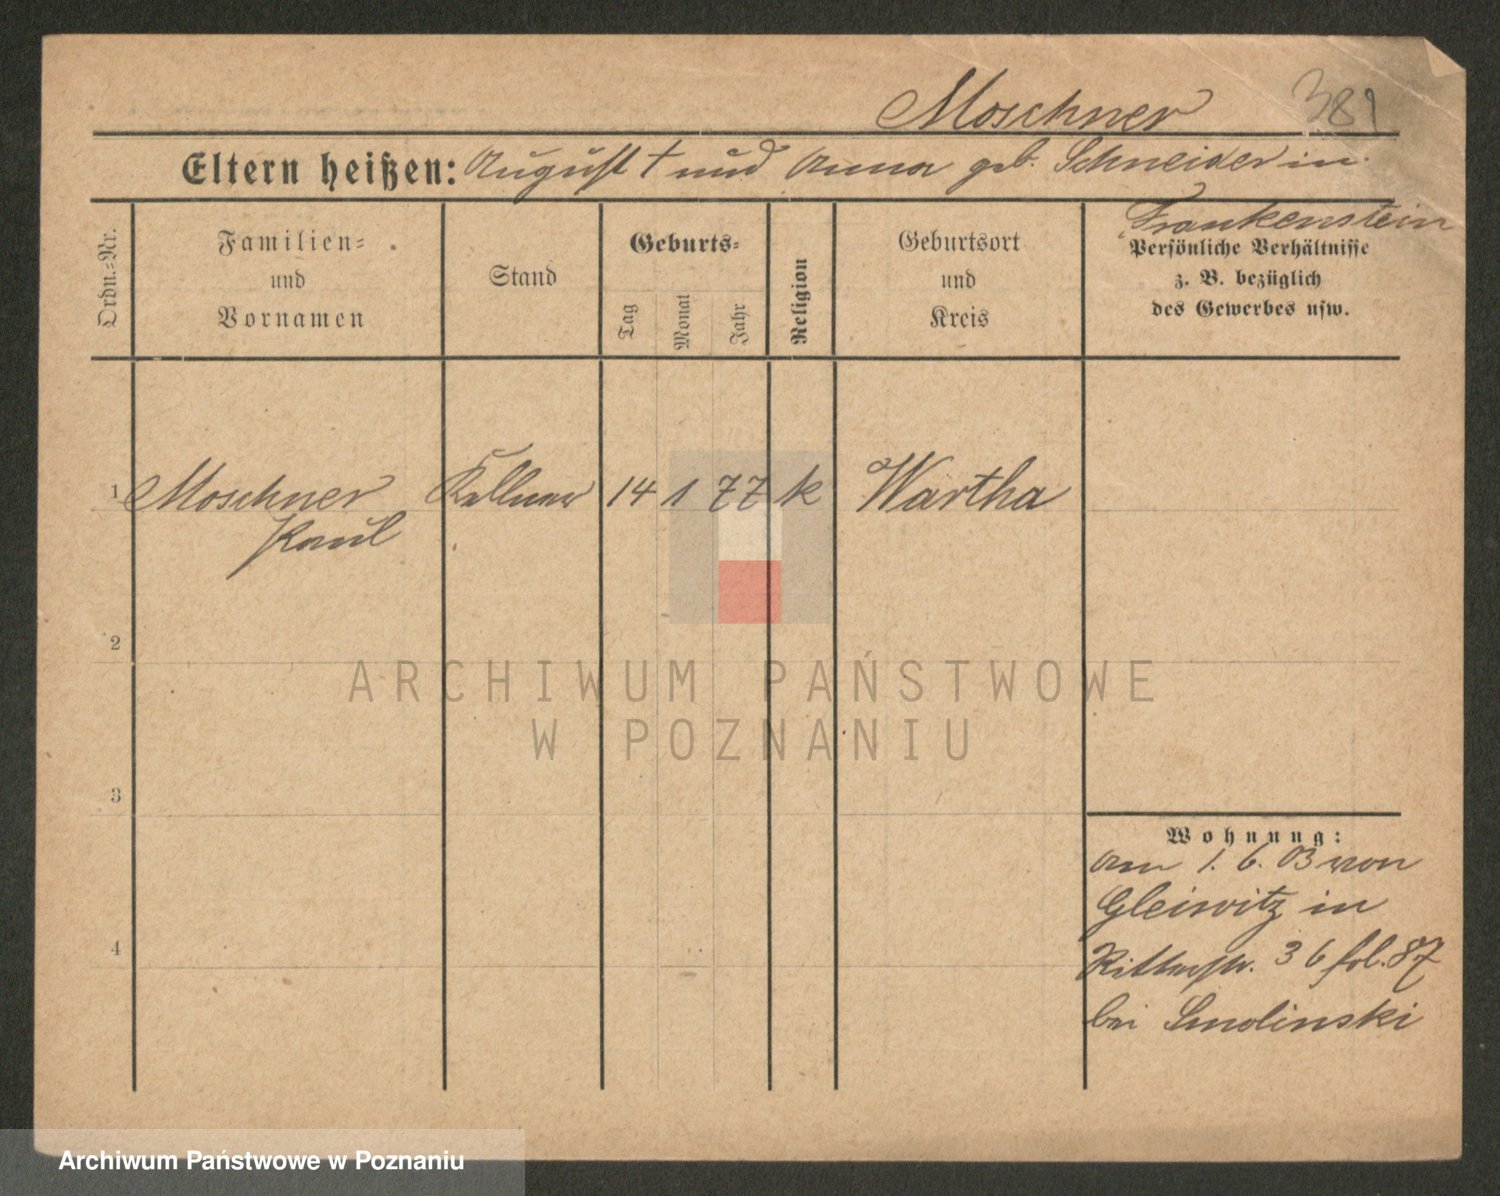 Moschner 381
Eltern heißen: August † und Anna geb. Schneider in
Frankenstein
Ordn.-Nr.
Familien-
und
Vornamen
Stand
Geburts-
Tag
Monat
Jahr
Religion
Geburtsort
und
Kreis
Persönliche Verhältnisse
z. B. bezüglich
des Gewerbes usw.
1 Moschner Kellner 14 1 77 k Wartha
Paul
2
3
4
Wohnung:
am 1. 6. 03 von
Gleiwitz in
Ritterstr. 36 fol. 87
bei Smolinski
ARCHIWUM PAŃSTWOWE
W POZNANIU
Archiwum Państwowe w Poznaniu